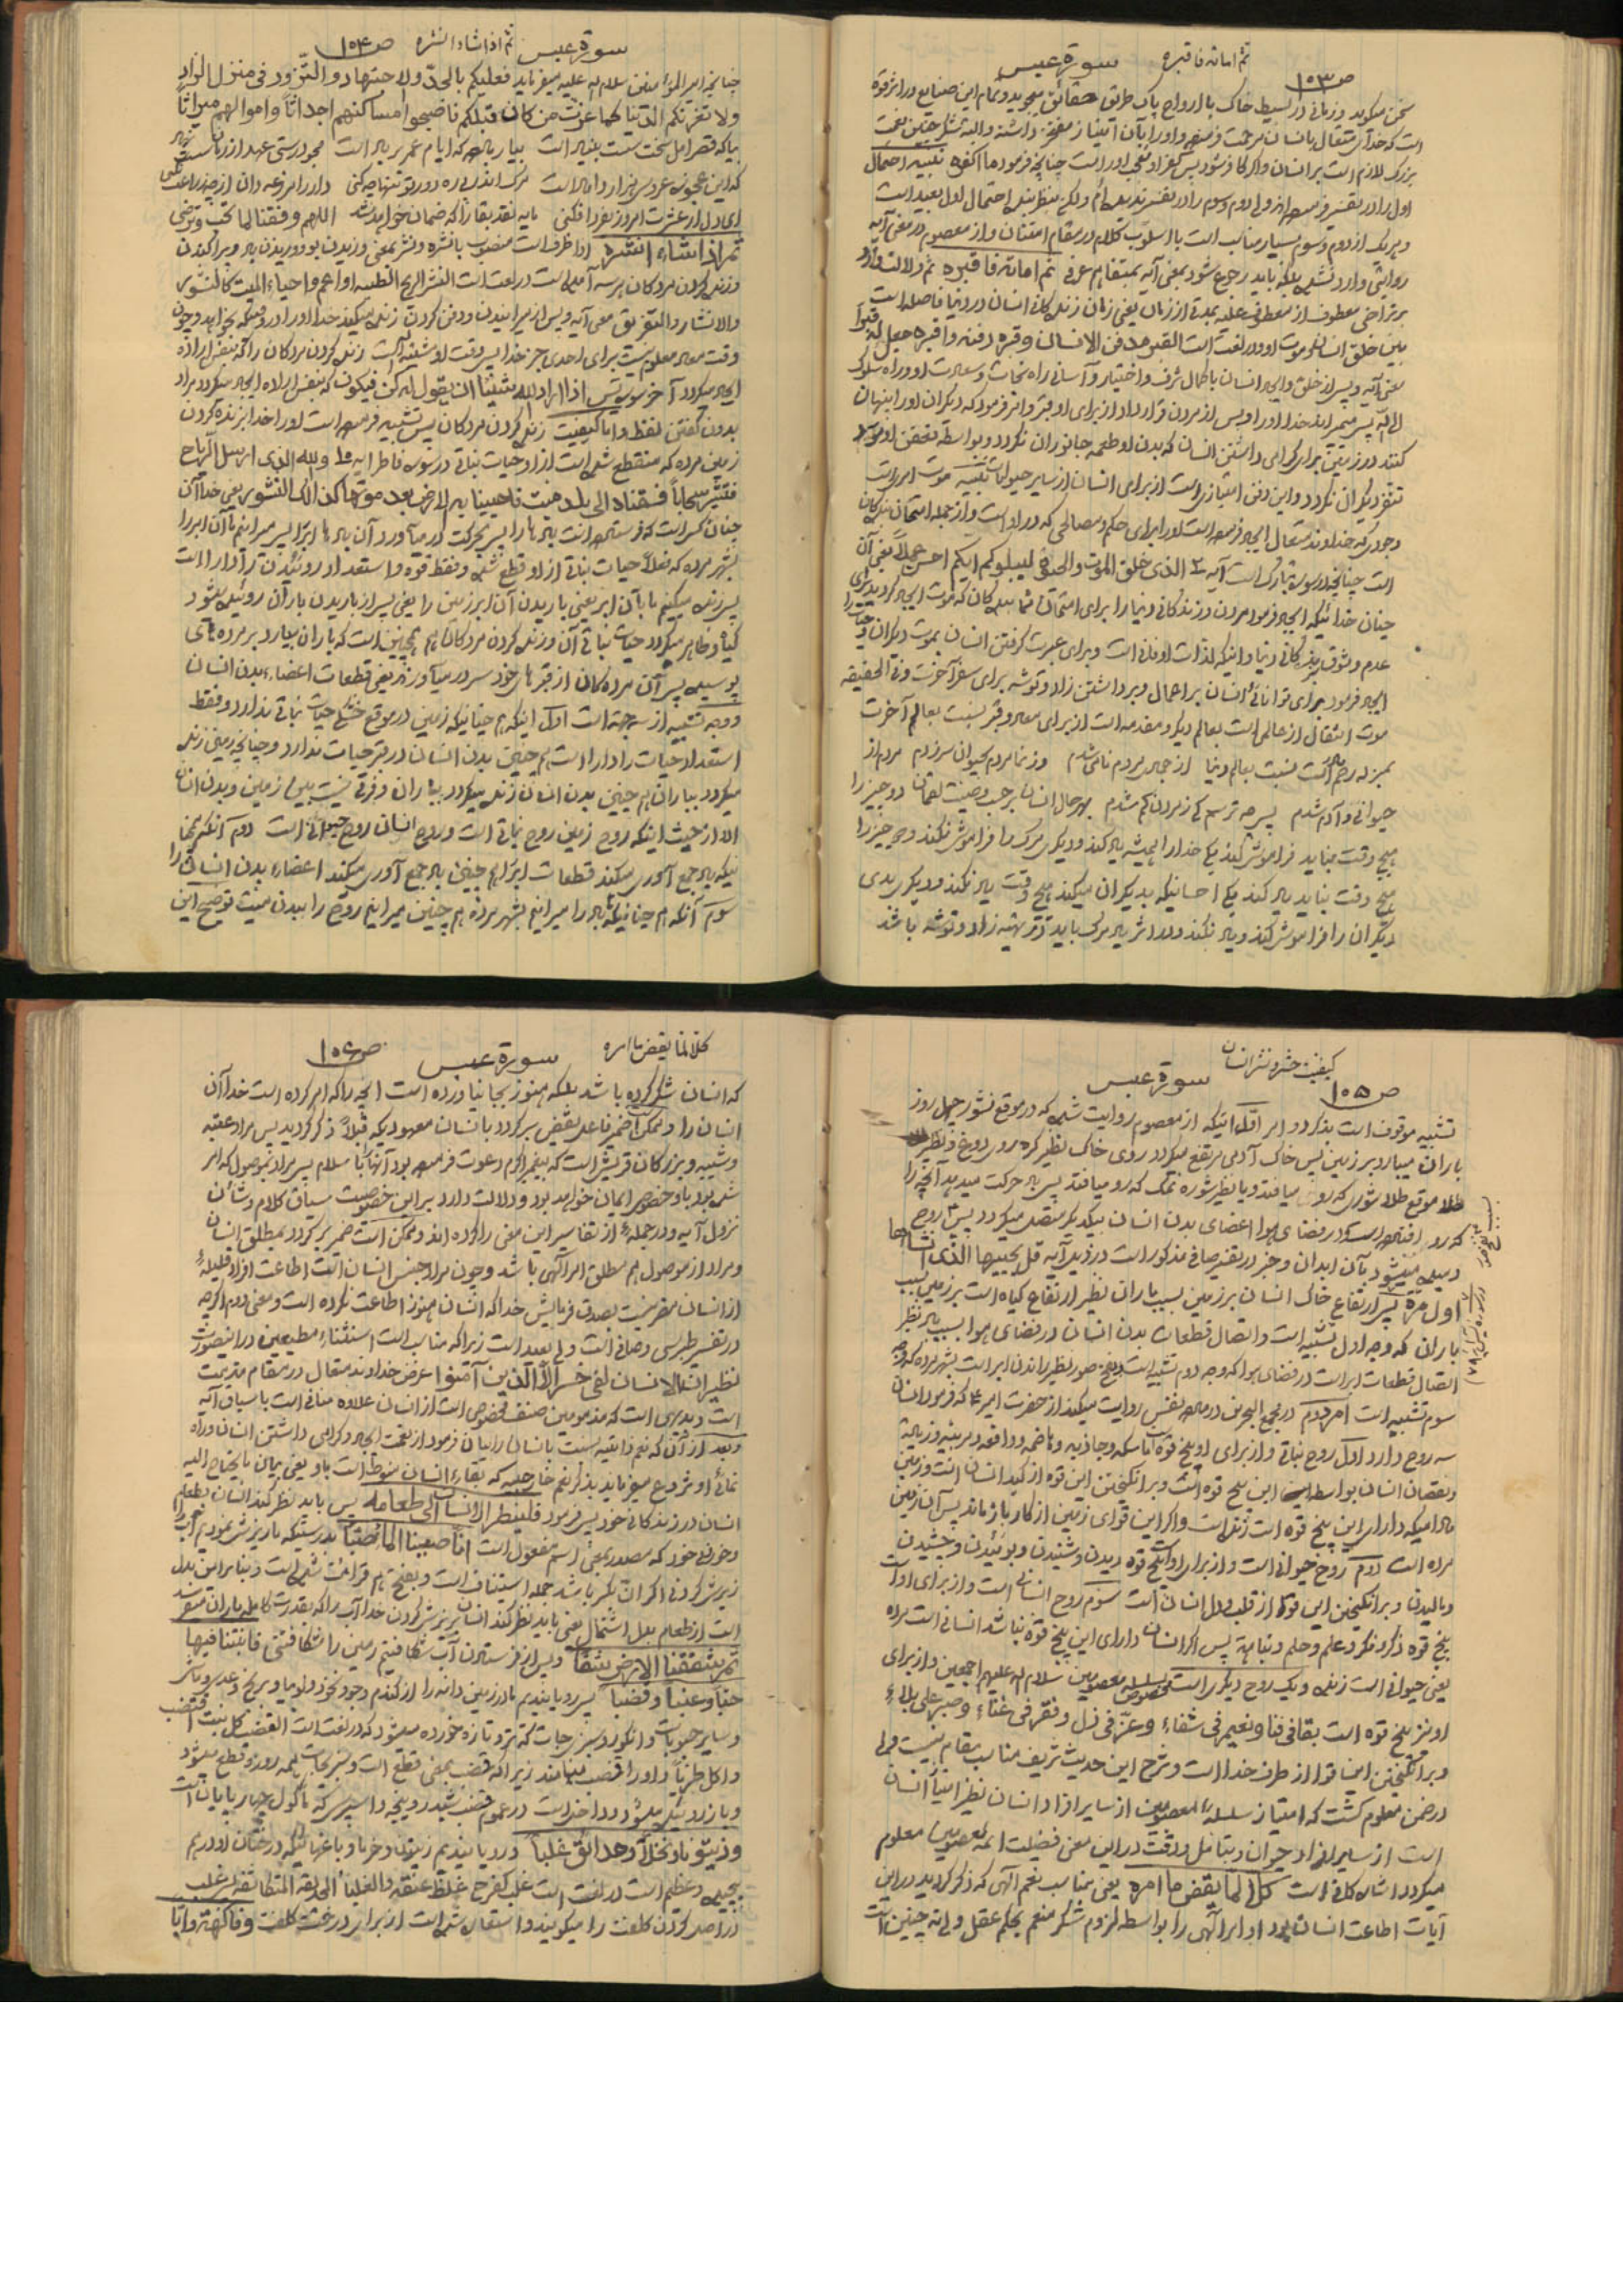 ثم اماته فاقبره سورة عبس ص ۱۰۳
سخن میگوید و زمانی در بسیط خاک با ارواح پاک طریق حقائق میجوید و تمام این صنایع در اثر قوه
است که خدای متعال بانسان مرحمت فرموده و او را بآن امتیاز مفتخر داشته و البته شکر چنین نعمت
بزرک لازم است بر انسان و اگر کافر شود پس کفر او تعجب آور است چنانچه فرمود ما اکفره
اول را در تفسیر فرموده اند ولی دوم و سوم را در تفسیر ندیده ام ولکن بنظر بنده احتمال اول بعید است
و هر یک از دوم و سوم بسیار مناسب است با اسلوب کلام در مقام امتنان و از معصوم در معنی آیه
روایتی وارد نشده بلکه باید رجوع شود بمعنی آیه بتفاهم عرفی ثم اماته فاقبره ثم دلالت دارد
بر تراخی معطوف از معطوف علیه بمدتی از زمان یعنی زمان زندگانی انسان در دنیا فاصله است
بین خلق انسان و موت او و در لغت است القبر مدفن الانسان و قبره دفنه و اقبره جعل له قبرا
معنی آیه و پس از خلق و ایجاد انسان با کمال شرف و اختیار و آسانی راه نجات و سعادت او و راه سلوک
الی الله پس میمیراند خدا او را و پس از مردن قرار داد از برای او قبر و امر فرمود که دیگران او را پنهان
کنند در زیر زمین برای گرامی داشتن انسان که بدن او طعمه جانوران نگردد و بواسطه تعفن او مورد
تنفر دیگران نگردد و این دفن امتیازی است از برای انسان از سایر حیوانات موت امری است
وجودی که خداوند متعال ایجاد فرموده است او را برای حکم و مصالحی که در او است و از جمله امتحان بندگان
است چنانچه در سوره تبارک است آیه ۲ الذی خلق الموت و الحیوة لیبلوکم ایکم احسن عملا یعنی آن
چنان خدائیکه ایجاد فرمود مردن و زندگانی دنیا را برای امتحان شما بندگان که موت ایجاد گردید برای
عدم وثوق بزندگانی دنیا و اینکه لذات او فانی است و برای عبرت گرفتن انسان بموت دیگران و حیات را
ایجاد فرمود برای توانائی انسان بر اعمال و برداشتن زاد و توشه برای سفر آخرت و فی الحقیقه
موت انتقال از عالمی است بعالم دیگر و مقدمه است از برای معاد و قبر نسبت بعالم آخرت
بمنزله رحم است نسبت بعالم دنیا از جمادی مردم نامی شدم وز نما مردم بحیوان سر زدم مردم از
حیوانی و آدم شدم پس چه ترسم کی ز مردن کم شدم بهر حال انسان بر حسب وصیت لقمان دو چیز را
هیچ وقت نباید فراموش کند یکی خدا را همیشه یاد کند و دیگری مرک را فراموش نکند و دو چیز را
هیچ وقت نباید یاد کند یکی احسانیکه بدیگران میکند هیچ وقت یاد نکند و دیگری بدی
دیگران را فراموش کند و یاد نکند و در اثر یاد مرک باید در تهیه زاد و توشه باشد
سورة عبس ثم اذا شاء انشره ص ۱۰۴
چنانچه امیر المؤمنین سلام الله علیه میفرماید فعلیکم بالجدّ و الاجتهاد و التّزود فی منزل الزاد
و لا تغرنکم الدنیا کما غرّت من کان قبلکم فاصبحوا مساکنهم اجداثاً و اموالهم میراثاً
بیا که قصر امل سخت سست بنیاد است بیار باده که ایام عمر بر باد است مجو درستی عهد از زمانه سست نهاد
که این عجوزه عروس هزار داماد است
ای دل ار عشرت امروز بفردا فکنی مایه نقد بقا را که ضمان خواهد شد اللهم وفقنا لما تحب و ترضی
ثم اذا شاء انشره اذا ظرف است منصوب بانشره و نشر بمعنی وزیدن بو و وزیدن باد و پراکندن
و زنده کردن مردگان هر سه آمده است در لغت است النشر الریح الطیبه او اعم و احیاء المیت کالنشور
و الانشار و التفریق معنی آیه و پس از میرانیدن و دفن کردن زنده میکند خدا او را در وقتیکه بخواهد و چون
وقت معاد معلوم نیست برای احدی جز خدا پس وقت او مشیة است زنده کردن مردگان را که بنفس اراده
ایجاد میگردد آخر سوره یس اذا اراد الله شیئا ان یقول له کن فیکون که بنفس اراده ایجاد میگردد مراد
بدون گفتن لفظ و اما کیفیت زنده کردن مردگان پس تشبیه فرموده است او را خدا بزنده کردن
زمین مرده که منقطع شده است از او حیات نباتی در سوره فاطر آیه ۱۰ و الله الذی ارسل الریاح
فتثیر سحاباً فسقناه الی بلد میت فاحیینا به الارض بعد موتها کذلک النشور یعنی خدا آن
چنان کسی است که فرستاده است بادها را پس بحرکت در میآورد آن بادها ابر را پس میرانیم ما آن ابر را
بشهر مرده که فعلاً حیات نباتی از او قطع شده و فقط قوه و استعداد روئیدن را دارا است
پس زنده میکنیم ما بآن ابر یعنی باریدن آن ابر زمین را یعنی پس از باریدن باران روئیده میشود
گیاه و ظاهر میگردد حیات نباتی آن و زنده کردن مردگان هم همچنین است که باران میبارد بر مرده های
پوسیده پس آن مردگان از قبرهای خود سر در میآورند یعنی قطعات اعضاء بدن انسان
و وجه تشبیه از سه جهت است اول اینکه هم چنانیکه زمین در موقع خشکی حیات نباتی ندارد و فقط
استعداد حیات را دارا است هم چنین بدن انسان در قبر حیات ندارد و چنانچه زمین زنده
میگردد بباران هم چنین بدن انسان زنده میگردد بباران و فرقی نیست بین زمین و بدن انسان
الا از حیث اینکه روح زمین روح نباتی است و روح انسان روح حیوانی است دوم آنکه هم چنا
نیکه باد جمع آوری میکند قطعات ابر را هم چنین باد جمع آوری میکند اعضاء بدن انسان را
سوم آنکه هم چنانیکه باد را میرانیم بشهر مرده هم چنین میرانیم روح را ببدن میت توضیح این
کیفیت حشر و نشر انسان سورة عبس ص ۱۰۵
تشبیه موقوف است بذکر دو امر اوّل اینکه از معصوم روایت شده که در موقع نشور چهل روز
باران میبارد بر زمین پس خاک آدمی مرتفع میگردد روی خاک نظیر کره روی دوغ و نظیر
طلا موقع طلا شوری که رو میافتد و یا نظیر شوره نمک که رو میافتد پس باد حرکت میدهد آنچه را
که رو افتاده است و در فضای هوا اعضای بدن انسان بیکدیگر متصل میگردد پس روح
دمیده میشود بآن ابدان و خبر در تفسیر صافی مذکور است در ذیل آیه قل یحییها الذی انشاها
اول مرة پس ارتفاع خاک انسان بر زمین بسبب باران نظیر ارتفاع گیاه است بر زمین بسبب
باران که وجه اول تشبیه است و اتصال قطعات بدن انسان در فضای هوا بسبب باد نظیر
اتصال قطعات ابر است در فضای هوا که وجه دوم تشبیه است و نفخ صور نظیر راندن ابر است بشهر مرده که وجه
سوم تشبیه است امر دوم در مجمع البحرین در ماده نفس روایت میکند از حضرت امیر ع که فرمود انسان
سه روح دارد اول روح نباتی و از برای او پنج قوه است ماسکه و جاذبه و هاضمه و دافعه و مربیه و زیاده
و نقصان انسان بواسطه این پنج قوه است و برانگیختن این قوه از کبد انسان است و زمین
مادامیکه دارای این پنج قوه است زنده است و اگر این قوای زمین از کار باز ماند پس آن زمین
مرده است دوم روح حیوانی است و از برای او است پنج قوه دیدن و شنیدن و بوئیدن و چشیدن
و بالیدن و برانگیختن این قوه از قلب و دل انسان است سوم روح انسانی است و از برای او است
پنج قوه ذکر و فکر و علم و حلم و نباهة پس اگر انسان دارای این پنج قوه نباشد انسانی است مرده
یعنی حیوانی است زنده و یک روح دیگری است مخصوص بسلسله معصومین سلام الله علیهم اجمعین و از برای
او نیز پنج قوه است بقا فی فنا و نعیم فی شقاء و عز فی ذل و فقر فی غناء و صبر علی بلاء
و برانگیختن این قوا از طرف خدا است و شرح این حدیث شریف مناسب مقام نیست ولی
در ضمن معلوم گشت که امتیاز سلسله معصومین از سایر افراد انسان نظیر امتیاز انسان
است از سایر افراد حیوان و بتامل و دقت در این معنی فضیلت ائمه معصومین معلوم
میگردد اشاره کافی است کلا لما یقض ما امره یعنی بمناسب نعم الهی که ذکر گردید در این
آیات اطاعت انسان بود اوامر الهی را بواسطه لزوم شکر منعم بحکم عقل ولی نه چنین است
کلا لما یقض ما امره سورة عبس ص ۱۰۶
که انسان شکر کرده باشد بلکه هنوز بجا نیاورده است آنچه را که امر کرده است خدا آن
انسان را و ممکن است ضمیر فاعل یقض بر گردد بانسان معهودیکه قبلاً ذکر گردید پس مراد عتبه
و شیبه و بزرگان قریش است که پیغمبر اکرم دعوت فرموده بود آنها را باسلام پس مراد بموصول که امر
شده بود باو خصوص ایمان خواهد بود و دلالت دارد بر این خصوصیت سیاق کلام و شأن
نزول آیه و در جمله از تفاسیر این معنی را کرده اند و ممکن است ضمیر بر گردد بمطلق انسان
و مراد از موصول هم مطلق امر الهی باشد و چون مراد جنس انسان است اطاعت افراد قلیله
از انسان مضر نیست بصدق فرمایش خدا که انسان هنوز اطاعت نکرده است و معنی دوم اگر چه
در تفسیر طبرسی و صافی است ولی بعید است زیرا که مناسب است استثناء مطیعین در اینصورت
نظیر ان الانسان لفی خسر الا الذین آمنوا عرض خداوند متعال در مقام مذمت
است و بدیهی است که مذمومین صنف مخصوصی است از انسان علاوه منافی است با سیاق آیه
و بعد از آن که نعم ذاتیه نسبت بانسان را بیان فرمود از نعمت ایجاد و گرامی داشتن انسان و راه
نمائی او شروع میفرماید بذکر نعم خارجیه که بقاء انسان منوط است باو یعنی بیان ما یحتاج الیه
انسان در زندگانی خود پس فرمود فلینظر الانسان الی طعامه پس باید نظر کند انسان بطعام
و خوردنی خود که مصدر بمعنی اسم مفعول است انا صببنا الماء صبّاً بدرستیکه ما ریزش نمودیم آب را
ریزش کردنی اگر ان بکسر باشد جمله استیناف است و بفتح هم قرائت شده است و بنابراین بدل
است از طعام بدل اشتمال یعنی باید نظر کند انسان بریزش کردن خدا آب را که بقدرت کامله باران میفرستد
ثم شققنا الارض شقاً و پس از فرستادن آب شکافتیم زمین را شکافتنی فانبتنا فیها
حباً و عنباً و قضباً پس رویانیدیم ما در زمین دانه را از گندم و جو و نخود و لوبیا و برنج و عدس و ماش
و سایر حبوبات و انگور و سبزیجات که تر و تازه خورده میشود که در لغت است القضب کل نبت اقتضب
و اکل طریاً و او را قضب مینامند زیرا که قضب بمعنی قطع است و سبزیجات همه روزه قطع میشود
و باز روئیده میشود و داخل است در عموم قضب شبدر و یونجه و اسپرس که ماکول چهارپایان است
و زیتوناً و نخلاً و حدائق غلباً و رویانیدیم زیتون و خرما و باغهائیکه درختان او درهم
پیچیده و عظیم است در لغت است غلب کفرح غلظ عنقه و الغلباء الحدیقة المتکاثفة و اغلب
در اصل گردن کلفت را میگویند و استعاره شده است از برای درخت کلفت و فاکهة و ابّاً